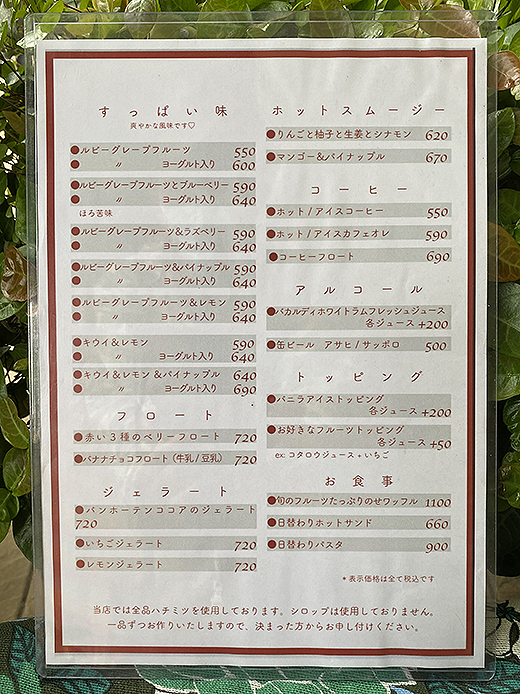 すっぱい味
爽やかな風味です♡
●ルビーグレープフルーツ 550
● 〃 ヨーグルト入り 600
●ルビーグレープフルーツとブルーベリー 590
● 〃 ヨーグルト入り 640
ほろ苦味
●ルビーグレープフルーツ&ラズベリー 590
● 〃 ヨーグルト入り 640
●ルビーグレープフルーツ&パイナップル 590
● 〃 ヨーグルト入り 640
●ルビーグレープフルーツ&レモン 590
● 〃 ヨーグルト入り 640
●キウイ&レモン 590
● 〃 ヨーグルト入り 640
●キウイ&レモン&パイナップル 640
● 〃 ヨーグルト入り 690
フロート
●赤い3種のベリーフロート 720
●バナナチョコフロート (牛乳/豆乳) 720
ジェラート
●バンホーテンココアのジェラート
720
●いちごジェラート 720
●レモンジェラート 720
ホットスムージー
●りんごと柚子と生姜とシナモン 620
●マンゴー&パイナップル 670
コーヒー
●ホット/アイスコーヒー 550
●ホット/アイスカフェオレ 590
●コーヒーフロート 690
アルコール
●バカルディホワイトラムフレッシュジュース
各ジュース +200
●缶ビール アサヒ/サッポロ 500
トッピング
●バニラアイストッピング
各ジュース +200
●お好きなフルーツトッピング
各ジュース +50
ex: コタロウジュース + いちご
お食事
●旬のフルーツたっぷりのせワッフル 1100
●日替わりホットサンド 660
●日替わりパスタ 900
*表示価格は全て税込です
当店では全品ハチミツを使用しております。シロップは使用しておりません。
一品ずつお作りいたしますので、決まった方からお申し付けください。